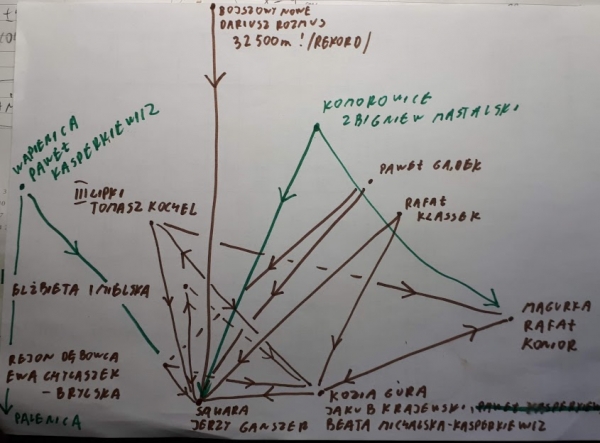 BOJSZOWY NOWE
DARIUSZ ROZMUS
32500m! /REKORD/
KOMOROWICE
ZBIGNIEW MASTALSKI
WAPIENICA
PAWEŁ
KASPERKIEWICZ
PAWEŁ
III LIPKI
TOMASZ KOCHEL
RAFAŁ
KLASSEK
ELŻBIETA IMIELSKA
MAGURKA
RAFAŁ
KOMOR
REJON DĘBOWCA
EWA
- BRYLSKA
PALENICA
JERZY GANSZER
KOZIA GÓRA
JAKUB KRAJEWSKI, PAWEŁ KASPERKIEW
BEATA MICHALSKA-KASPERKIEWICZ